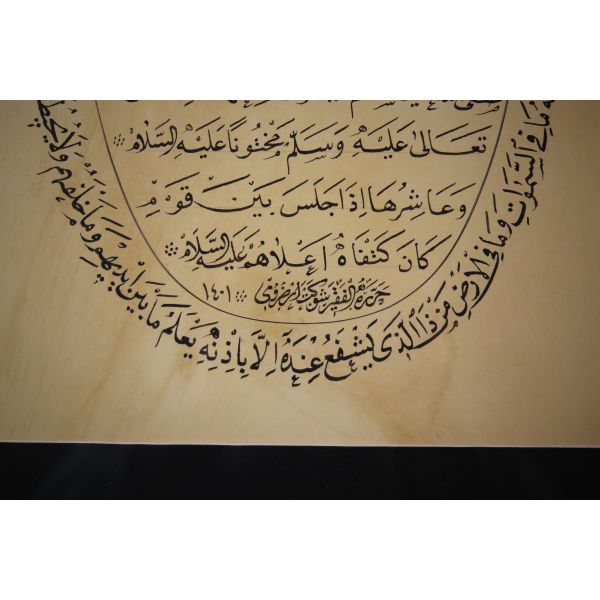 تعالى عليه وسلم مختونا عليه السلام
وعاشرها اذا جلس بين قوم
كان كتفاه اعلاهم عليه السلام
حرره الفقير شوكت ١٤٠١
ما في السموات وما في الارض من ذا الذي يشفع عنده الا باذنه يعلم ما بين ايديهم وما خلفهم ولا يحيطو